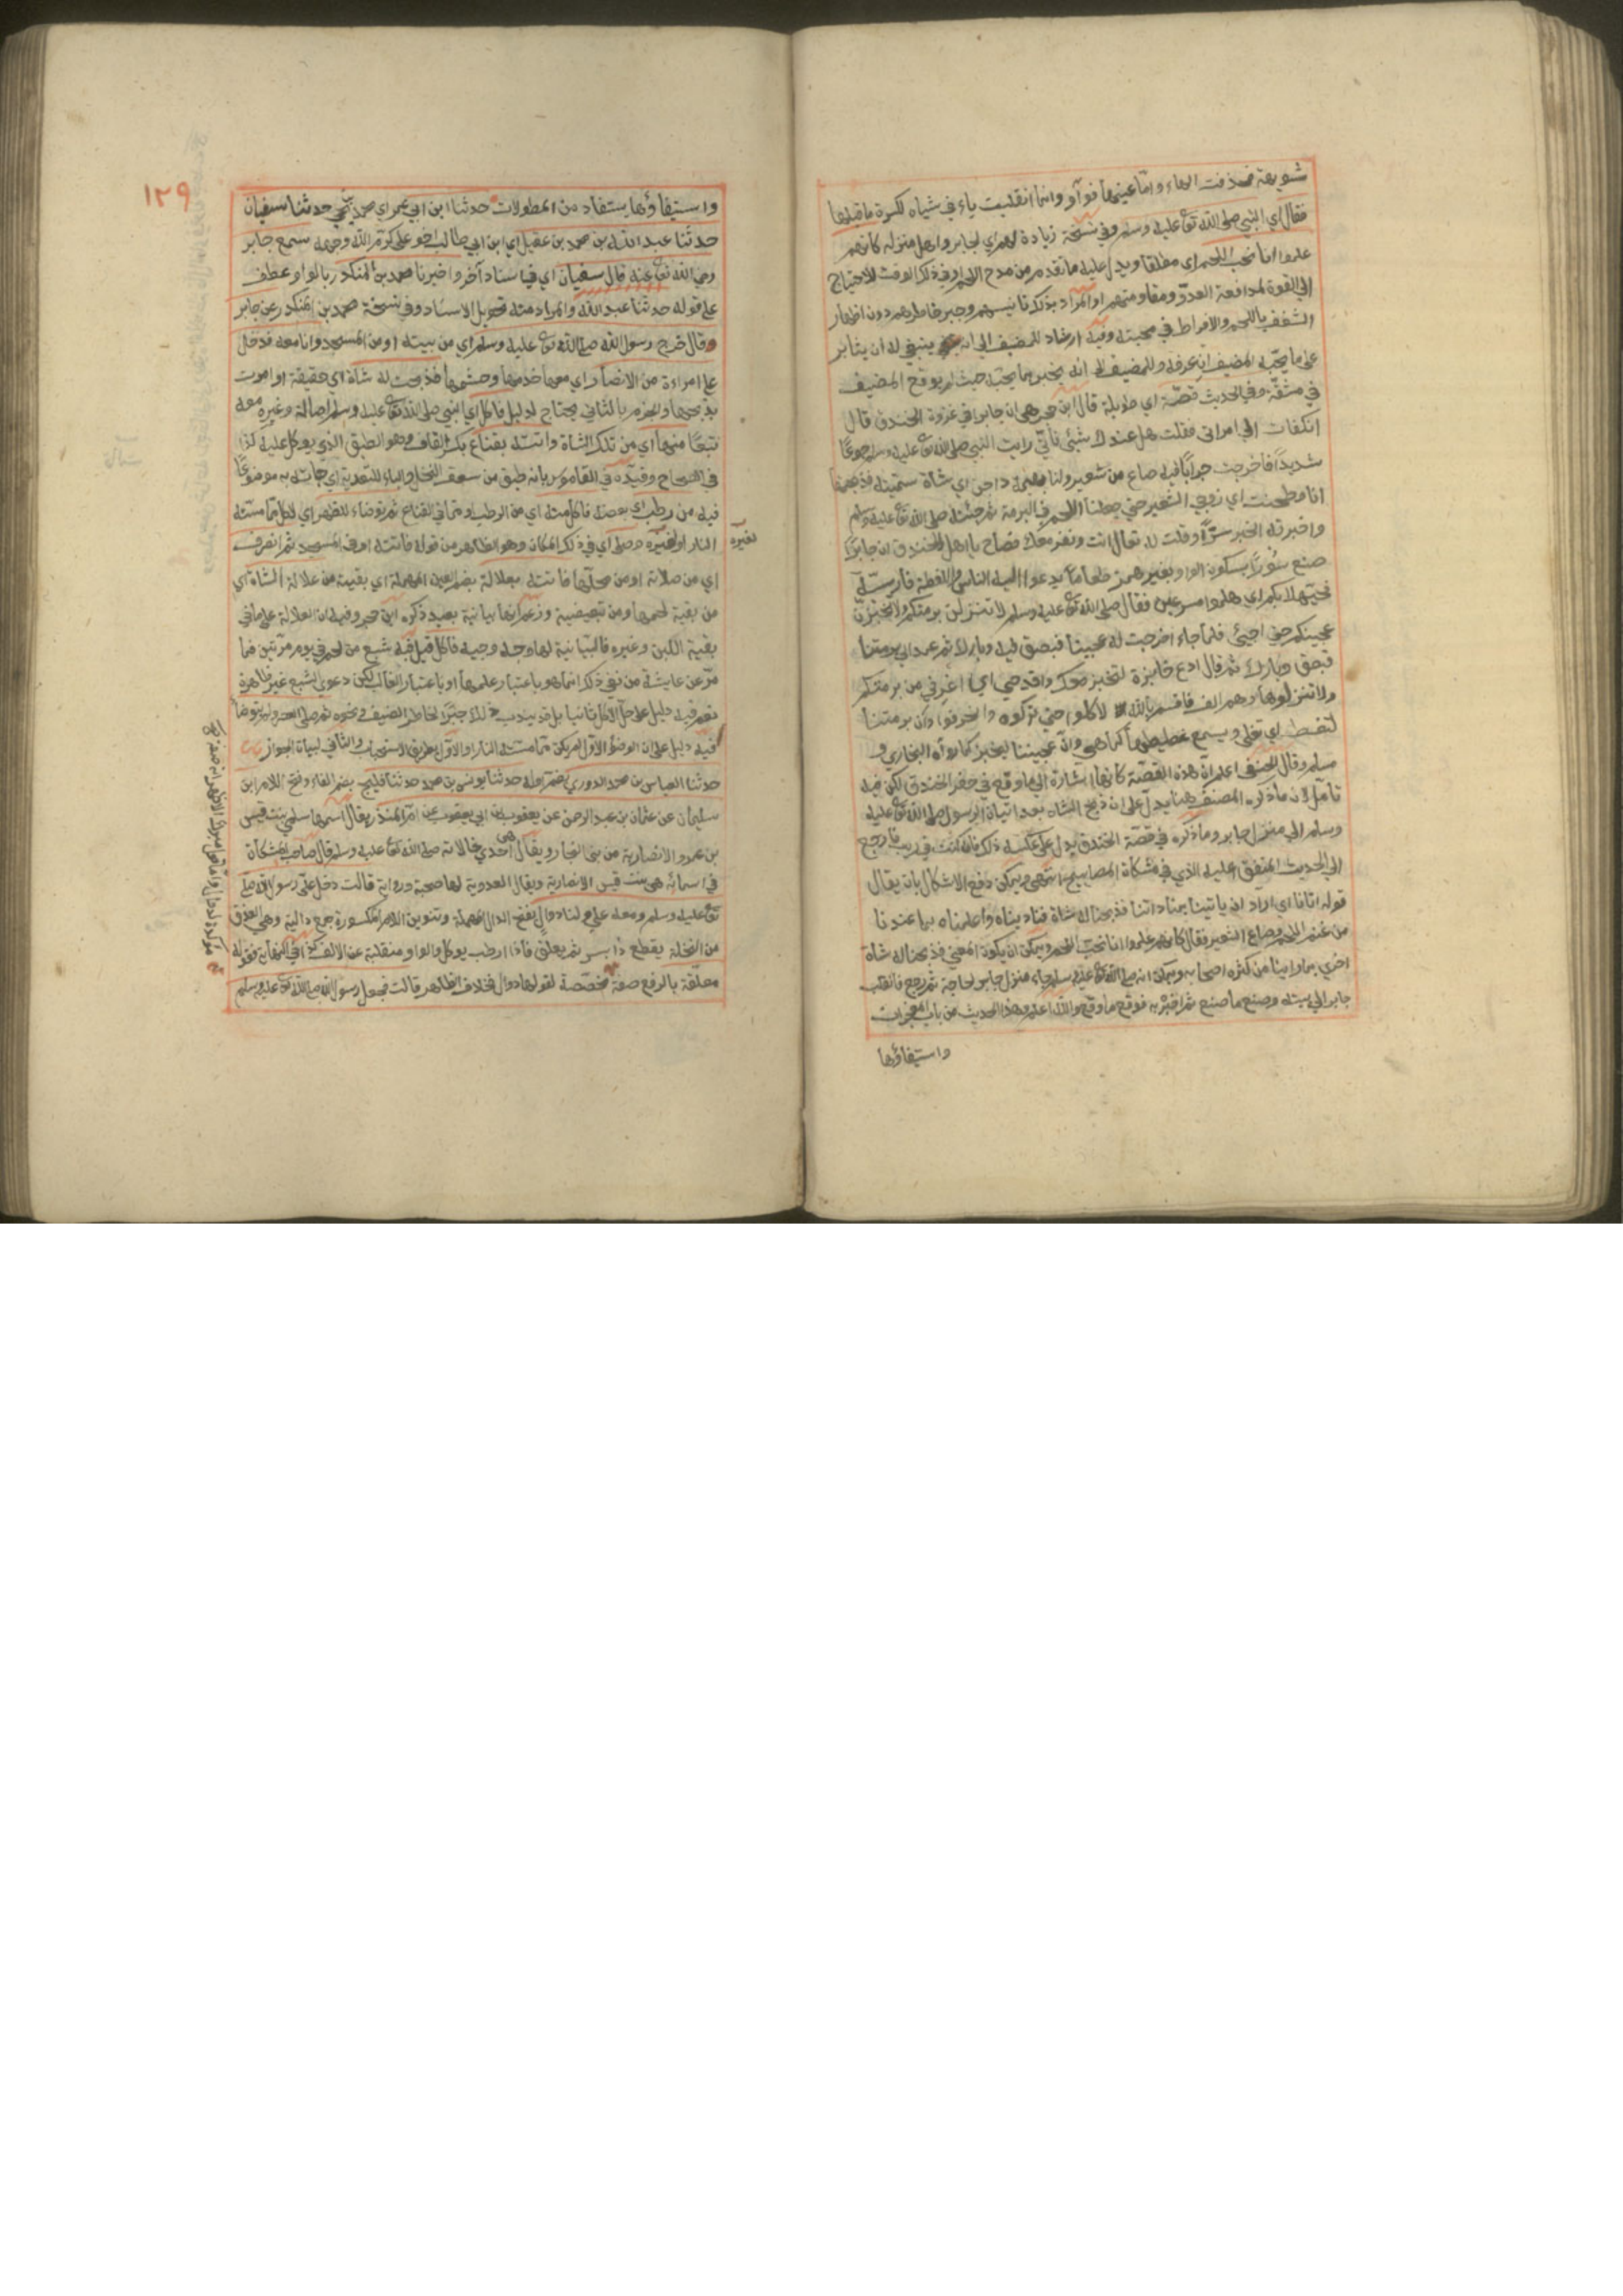 شويهة فحذفت الهاء واما عينها فواو وانما انقلبت ياء في شياه لكسرة ما قبلها
فقال اي النبي صلى الله تع عليه وسلم وفي نسخة زيادة لهم اي لجابر واهل منزله كانهم
علموا انا نحب اللحم اي مطلقا ويدل عليه ما تقدم من مدح اللحم او في ذلك الوقت للاحتياج
الى القوة لمدافعة العدو ومقاومتهم او المراد بذلك تانيسهم وجبر خاطرهم دون اظهار
الشغف باللحم والافراط في محبته وفيه ارشاد للمضيف الى انه ينبغي له ان يثابر
على ما يحبه المضيف ان عرفه وللمضيف الى انه يخبر بما يحبه حيث لم يوقع المضيف
في مشقة وفي الحديث قصة اي طويلة قال ابن حجر هي ان جابرا في غزوة الخندق قال
انكفات الى امراتي فقلت هل عندك شيئ فاني رايت النبي صلى الله تع عليه وسلم جوعا
شديدا فاخرجت جرابا فيه صاع من شعير ولنا بهيمة داجن اي شاة سمينة فذبحتها
انا وطحنت اي زوجي الشعير حتى جعلنا اللحم في البرمة ثم جئته صلى الله تع عليه وسلم
واخبرته الخبر سرا وقلت له تعال انت ونفر معك فصاح يا اهل الخندق ان جابرا
صنع سورا بسكون الواو بغير همز طعاما يدعوا اليه الناس واللفظة فارسية
فحيهلا بكم اي هلموا مسرعين فقال صلى الله تع عليه وسلم لا تنزلن برمتكم ولا تخبزن
عجينكم حتى اجيئ فلما جاء اخرجت له عجينا فبصق فيه وبارك ثم عمد الى برمتنا
فبصق وبارك ثم قال ادع خابزة لتخبز معك واقدحي اي اغرفي من برمتكم
ولا تنزلوها وهم الف فاقسم بالله لاكلوا حتى تركوه وانحرفوا وان برمتنا
لتغط اي تغلي ويسمع غطيطها كما هي وان عجيننا ليخبز كما رواه البخاري و
مسلم وقال الحنفي اعلم ان هذه القصة كانها اشارة الى ما وقع في حفر الخندق لكن فيه
تامل لان ما ذكره المصنف هنا يدل على ان ذبح الشاه بعد اتيان الرسول صلى الله تع عليه
وسلم الى منزل جابر وما ذكره في قصة الخندق يدل على عكسه ذلك فان كنت في ريب فارجع
الى الحديث المتفق عليه الذي في مشكاة المصابيح انتهى ويمكن دفع الاشكال بان يقال
قوله اتانا اي اراد ان ياتينا بمناداتنا فذبحنا له شاة فناديناه واعلمناه بما عندنا
من غنم اللحم وصاع الشعير فقال كانهم علموا انا نحب اللحم ويمكن ان يكون المعنى فذبحنا له شاة
اخرى بما راينا من كثره اصحابه ويمكن انه صلى الله تع عليه وسلم جاء منزل جابر لحاجة ثم رجع فانقلب
جابر الى بيته وصنع ما صنع ثم اخبره فوقع ما وقع والله اعلم وهذا الحديث من باب المعجزات
واستيفاؤها
١٢٩
واستيفاؤها يستفاد من المطولات حدثنا ابن ابي عمر اي محمد بن يحيى حدثنا سفيان
حدثنا عبد الله بن محمد بن عقيل اي ابن ابي طالب اخو علي كرم الله وجهه سمع جابر
رضي الله تع عنه قال سفيان اي في اسناد آخر واخبرنا محمد بن المنكدر بالواو عطف
على قوله حدثنا عبد الله والمراد منه تحويل الاسناد وفي نسخة محمد بن المنكدر عن جابر
وقال خرج رسول الله صلى الله تع عليه وسلم اي من بيته او من المسجد وانا معه فدخل
على امراءة من الانصار اي معها خدمها وحشمها فذبحت له شاة اي حقيقة او امرت
بذبحها والجزم بالثاني يحتاج لدليل فاكل اي النبي صلى الله تع عليه وسلم اصالة وغيره معه
تبعا منها اي من تلك الشاة واتته بقناع بكسر القاف وهو الطبق الذي يوكل عليه كذا
في الصحاح وقيده في القاموس بانه طبق من سعف النخل والباء للتعدية اي جاءته به موضوعا
فيه من رطب اي بعضه فاكل منه اي من الرطب او مما في القناع ثم توضاء للظهر اي لاكل ما مسته
النار او لغيره وصلى اي في ذلك المكان وهو الظاهر من قوله فاتته او في المسجد ثم انصرف
لغيره
اي من صلاته او من محلها فاتته بعلالة بضم العين المهملة اي بقية من علالة الشاة اي
من بقية لحمها ومن تبعيضية وزعم انها بيانية بعيد ذكره ابن حجر وفيه ان العلالة على ما في
بقية اللبن وغيره فالبيانية لها وجه وجيه فاكل قيل فيه شبع من لحم في يوم مرتين فما
مر عن عايشة من نفي ذلك انما هو باعتبار علمها او باعتبار الغالب لكن دعوى الشبع غير ظاهرة
نعم فيه دليل على حل الاكل ثانيا بل قد يندب ذلك جبرا لخاطر المضيف ونحوه ثم صلى العصر ولم يتوضأ
فيه دليل على ان الوضؤ الاول لم يكن مما مسته النار او الاول بطريق الاستحباب والثاني لبيان الجواز
حدثنا العباس بن محمد الدوري بضم اوله حدثنا يونس بن محمد حدثنا فليح بضم الفاء وفتح اللام ابن
سليمان عن عثمان بن عبد الرحمن عن يعقوب بن ابي يعقوب عن ام المنذر يقال اسمها سلمى بنت قيس
بن عمرو الانصارية من بني النجار ويقال هي احدى خالاته صلى الله تع عليه وسلم قال صاحب المشكاة
في اسمائه هي بنت قيس الانصارية ويقال العدوية لها صحبة ورواية قالت دخل علي رسول الله صلى
تع عليه وسلم ومعه علي ولنا دوال بفتح الدال المهملة وتنوين اللام المكسورة جمع دالية وهي العذق
من النخلة يقطع ذا بسر ثم يعلق فاذا ارطب يوكل والواو منقلبة عن الالف كذا في النهاية فقوله
معلقة بالرفع صفة مخصصة لقولها دوال فخلاف الظاهر قالت فجعل رسول الله صلى الله تع عليه وسلم